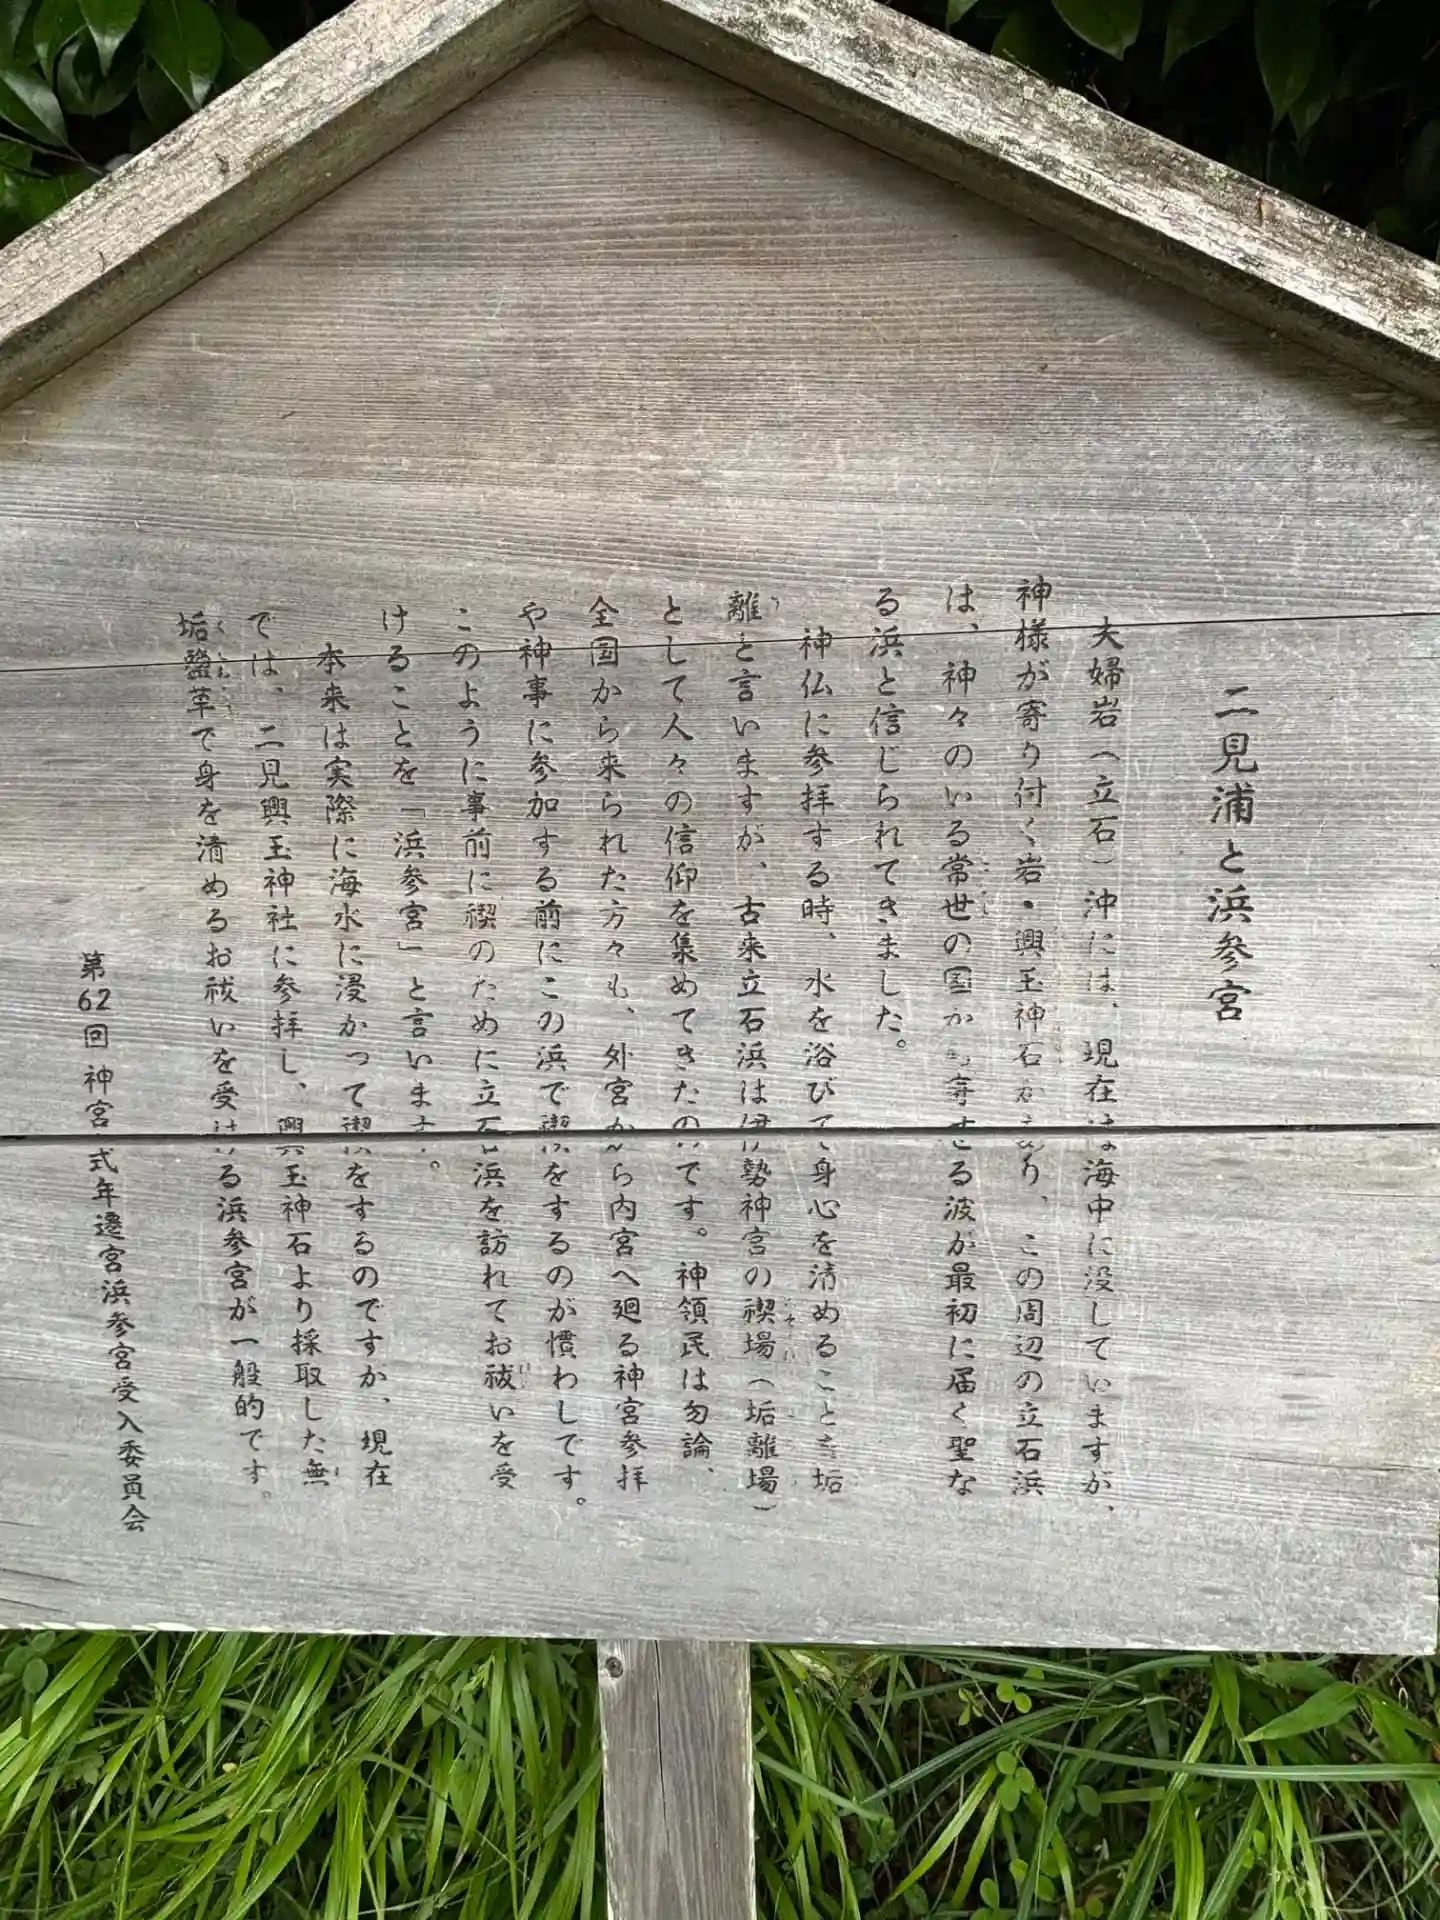 二見浦と浜参宮
夫婦岩(立石)沖には、現在は海中に没していますが、
神様が寄り付く岩・興玉神石があり、この周辺の立石浜
は、神々のいる常世の国から寄せる波が最初に届く聖な
る浜と信じられてきました。
神仏に参拝する時、水を浴びて身心を清めることを垢
離と言いますが、古来立石浜は伊勢神宮の禊場(垢離場)
として人々の信仰を集めてきたのです。神領民は勿論、
全国から来られた方々も、外宮から内宮へ廻る神宮参拝
や神事に参加する前にこの浜で禊をするのが慣わしです。
このように事前に禊のために立石浜を訪れてお祓いを受
けることを「浜参宮」と言います。
本来は実際に海水に浸かって禊をするのですが、現在
では、二見興玉神社に参拝し、興玉神石より採取した無
垢鹽草で身を清めるお祓いを受ける浜参宮が一般的です。
第62回神宮式年遷宮浜参宮受入委員会